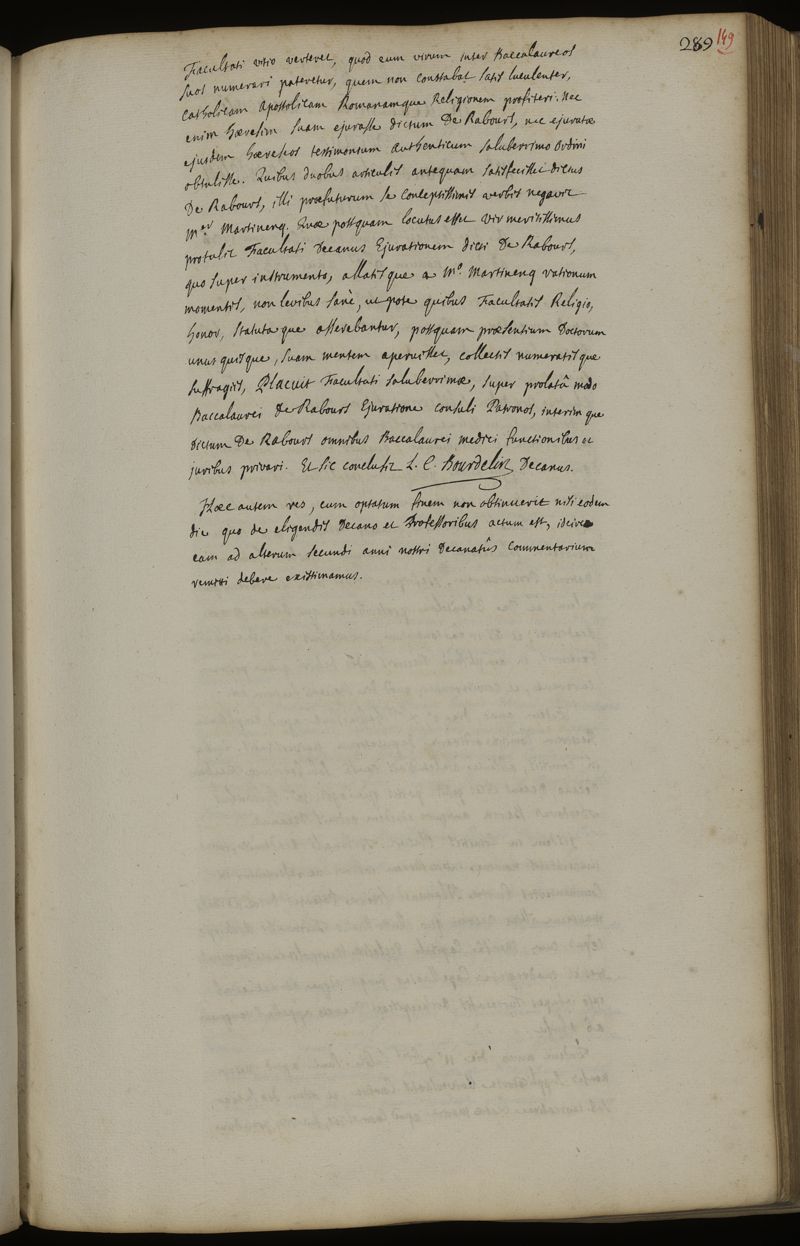 289 149
Facultati vitio verteret, quod eum virum inter Baccalaureos
suos numerari pateretur, quem non constabat satis luculenter,
Catholicam Apostolicam Romanamque Religionem profiteri. Nec
enim hæresim suam ejurasse dictum De Rabours, nec ejuratæ
ejusdem hæreseos testimonium authenticum saluberrimo ordini
obtulisse. Quibus duobus articulis antequam satisfecisset dictus
De Rabours, illi præfuturum se conceptissimis verbis negavit
M.er Martinenq. Quæ postquam locutus esset vir meritissimus
protulit Facultati Decanus Ejurationem dicti De Rabours,
quo super instrumento, allatisque a M.o Martinenq rationum
momentis, non levibus sanè, ut pote quibus Facultatis Religio,
honor, statutaque asserebantur, postquam præsentium Doctorum
unusquisque, suam mentem aperuisset, collectis numeratisque
suffragiis, Placuit Facultati saluberrimæ, super prolatâ modo
Baccalaurei De Rabours Ejuratione consuli Patronos, interimque
dictum De Rabours omnibus Baccalaurei medici functionibus et
juribus privari. Et sic conclusit L. C. Bourdelin Decanus.
Hæc autem res, cum optatum finem non obtinuerit nisi eodem
die quo de eligendis Decano et Professoribus actum est,
eam ad alterum secundi anni nostri Decanatûs Commentarium
remitti debere existimamus.